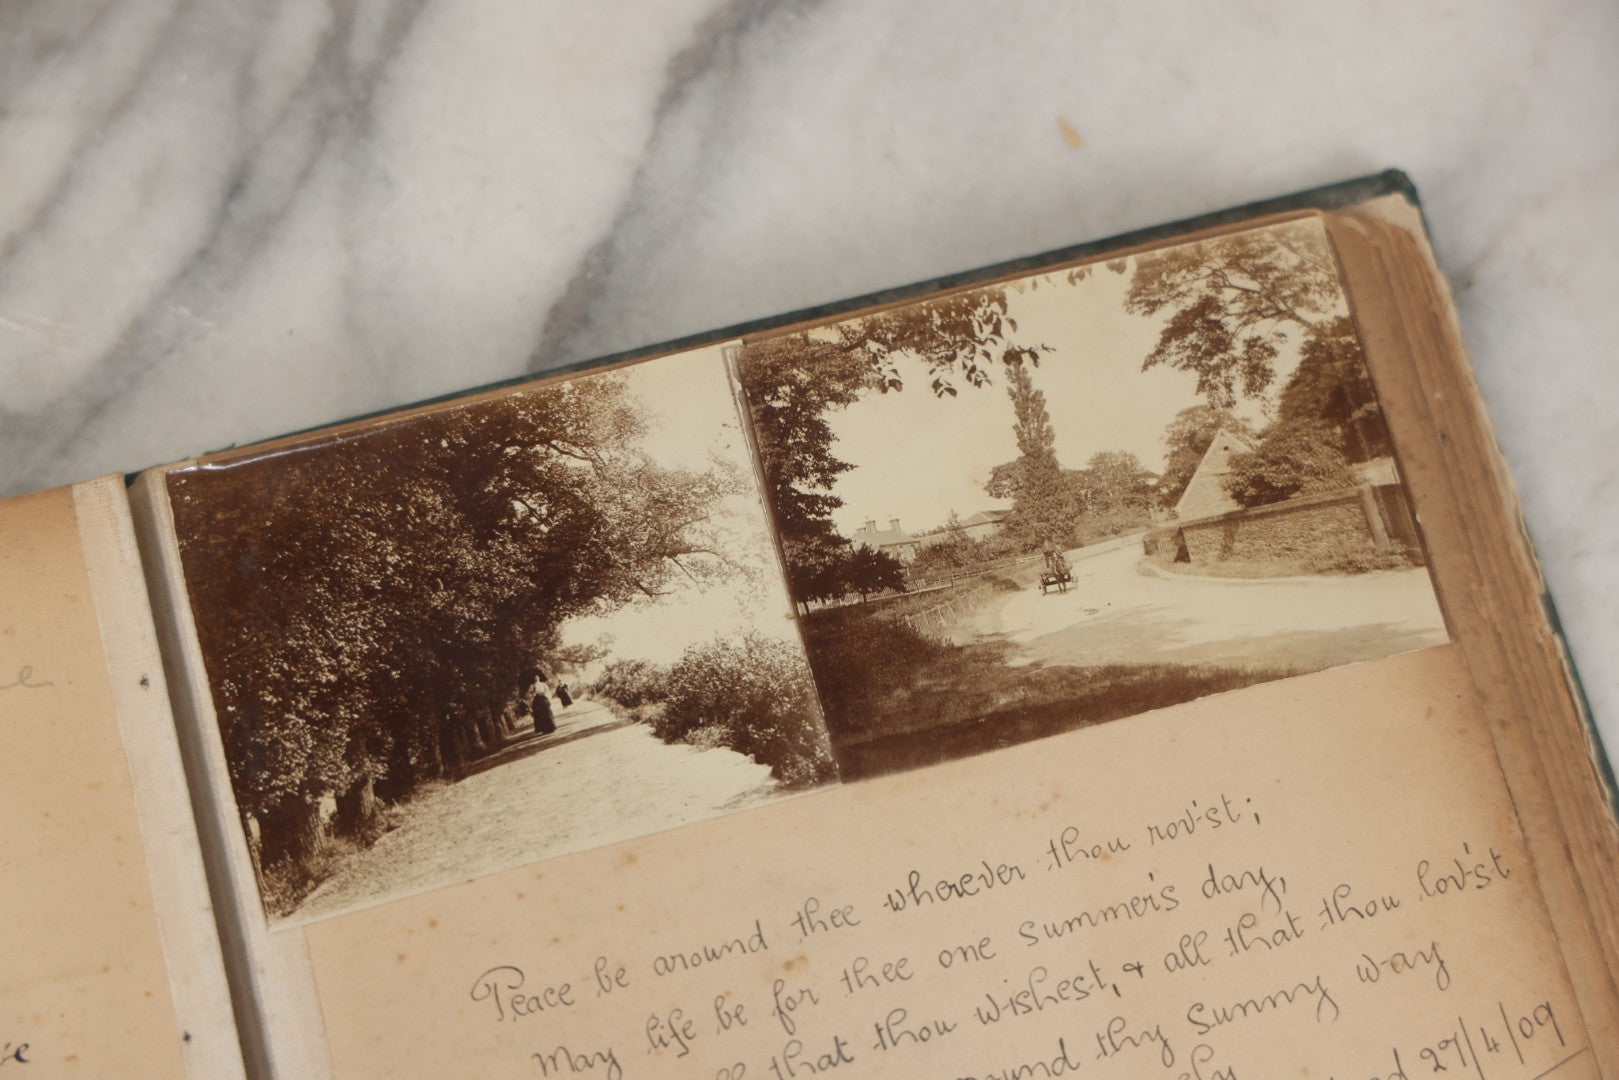 e.
ie
Peace be around thee wherever thou rov'st;
May life be for thee one summer's day,
that thou wishest, & all that thou lov'st
thy sunny way
27/4/09